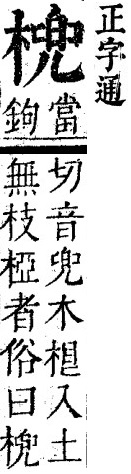 正字通
橷
當
鉤
切音兜木根入土
無枝椏者俗曰橷